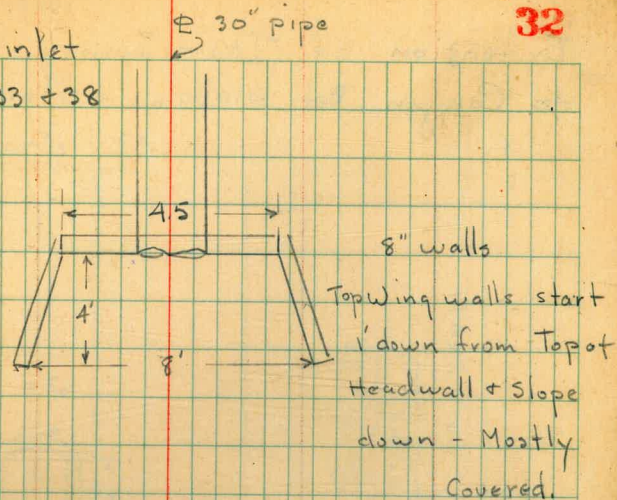 32
℄ 30" pipe
inlet
33 + 38
4.5
4'
8'
8" walls
Top Wing walls start
1' down from Top of
Headwall & Slope
down - Mostly
Covered.